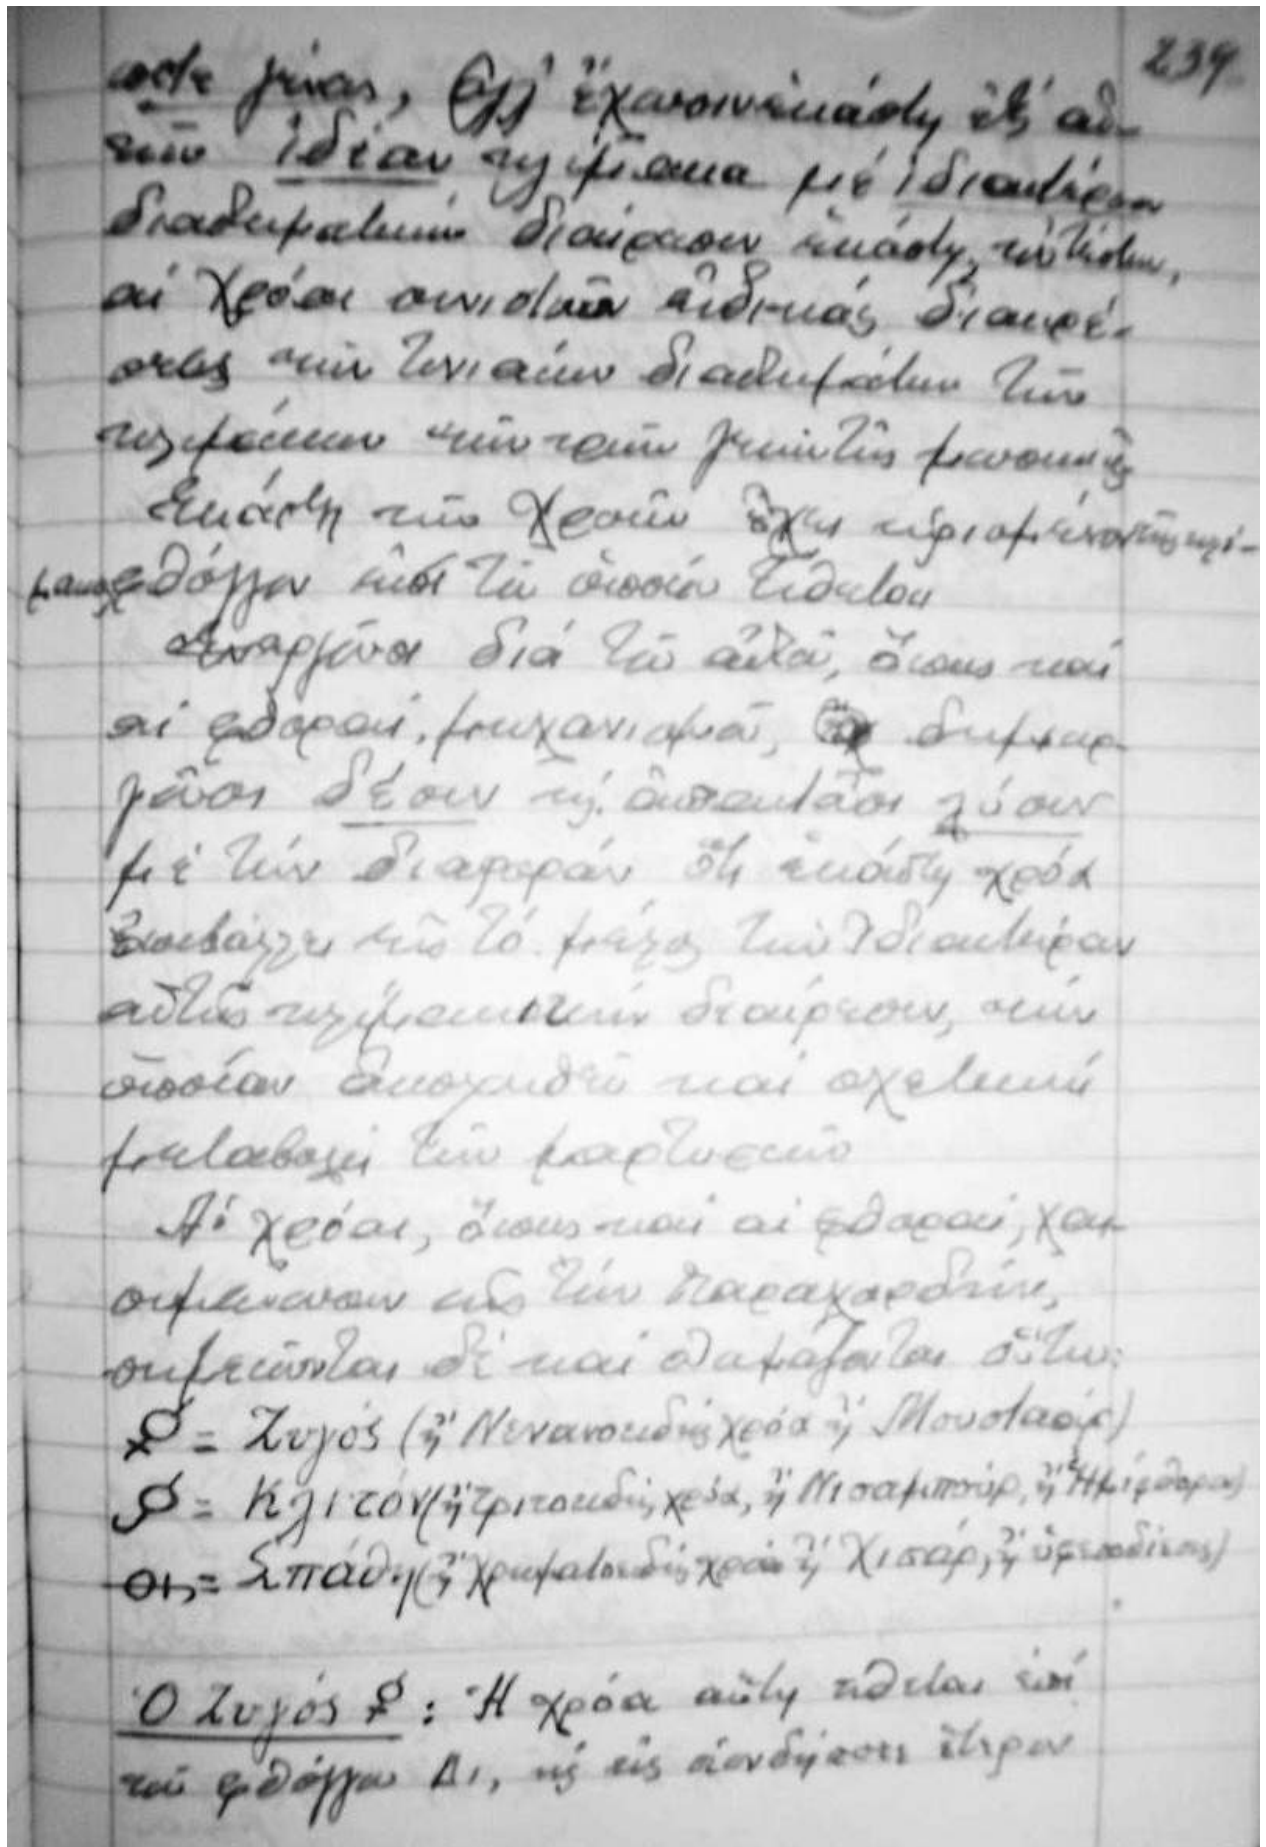 239
γένος, ἔχουσιν ἑκάστη ἐξ αὐ-
τῶν ἰδίαν κλίμακα μέ ἰδιαιτέραν
διαστηματικήν διαίρεσιν ἑκάστη,
αἱ Χρόαι συνιστοῦν εἰδικάς διαιρέ-
σεις τῶν τονιαίων διαστημάτων τῶν
κλιμάκων τῶν τριῶν γενῶν τῆς μουσικῆς
Ἑκάστη τῶν Χροῶν ἔχει ὡρισμένον τῆς κλί-
μακος φθόγγον ἐπί τοῦ ὁποίου τίθεται
Ἐνεργοῦσι διά τοῦ αὐτοῦ, ὅπως καί
αἱ φθοραί, μηχανισμοῦ, δημιουρ-
γοῦσι δέσιν καί ἀπαιτοῦσι λύσιν
μέ τήν διαφοράν ὅτι ἑκάστη χρόα
ἐπιβάλλει εἰς τό μέλος τήν ἰδιαιτέραν
αὐτῆς κλιμακικήν διαίρεσιν, τήν
ὁποίαν ἀκολουθεῖ καί σχετική
μεταβολή τῶν μαρτυριῶν
Αἱ χρόαι, ὅπως καί αἱ φθοραί, χρη-
σιμεύουν εἰς τήν παραχορδήν,
σημειοῦνται δέ καί ὀνομάζονται οὕτω:
= Ζυγός (ἤ Νενανοειδής χρόα ἤ Μουσταάρ)
= Κλιτόν (ἤ τριτοειδής χρόα, ἤ Νισαμπούρ, ἤ Ἡμίφθορον)
= Σπάθη (ἤ χρωματοειδής χρόα ἤ Χισάρ, ἤ)
Ὁ Ζυγός : Ἡ χρόα αὕτη τίθεται ἐπί
τοῦ φθόγγου Δι, καί εἰς οἱονδήποτε ἕτερον